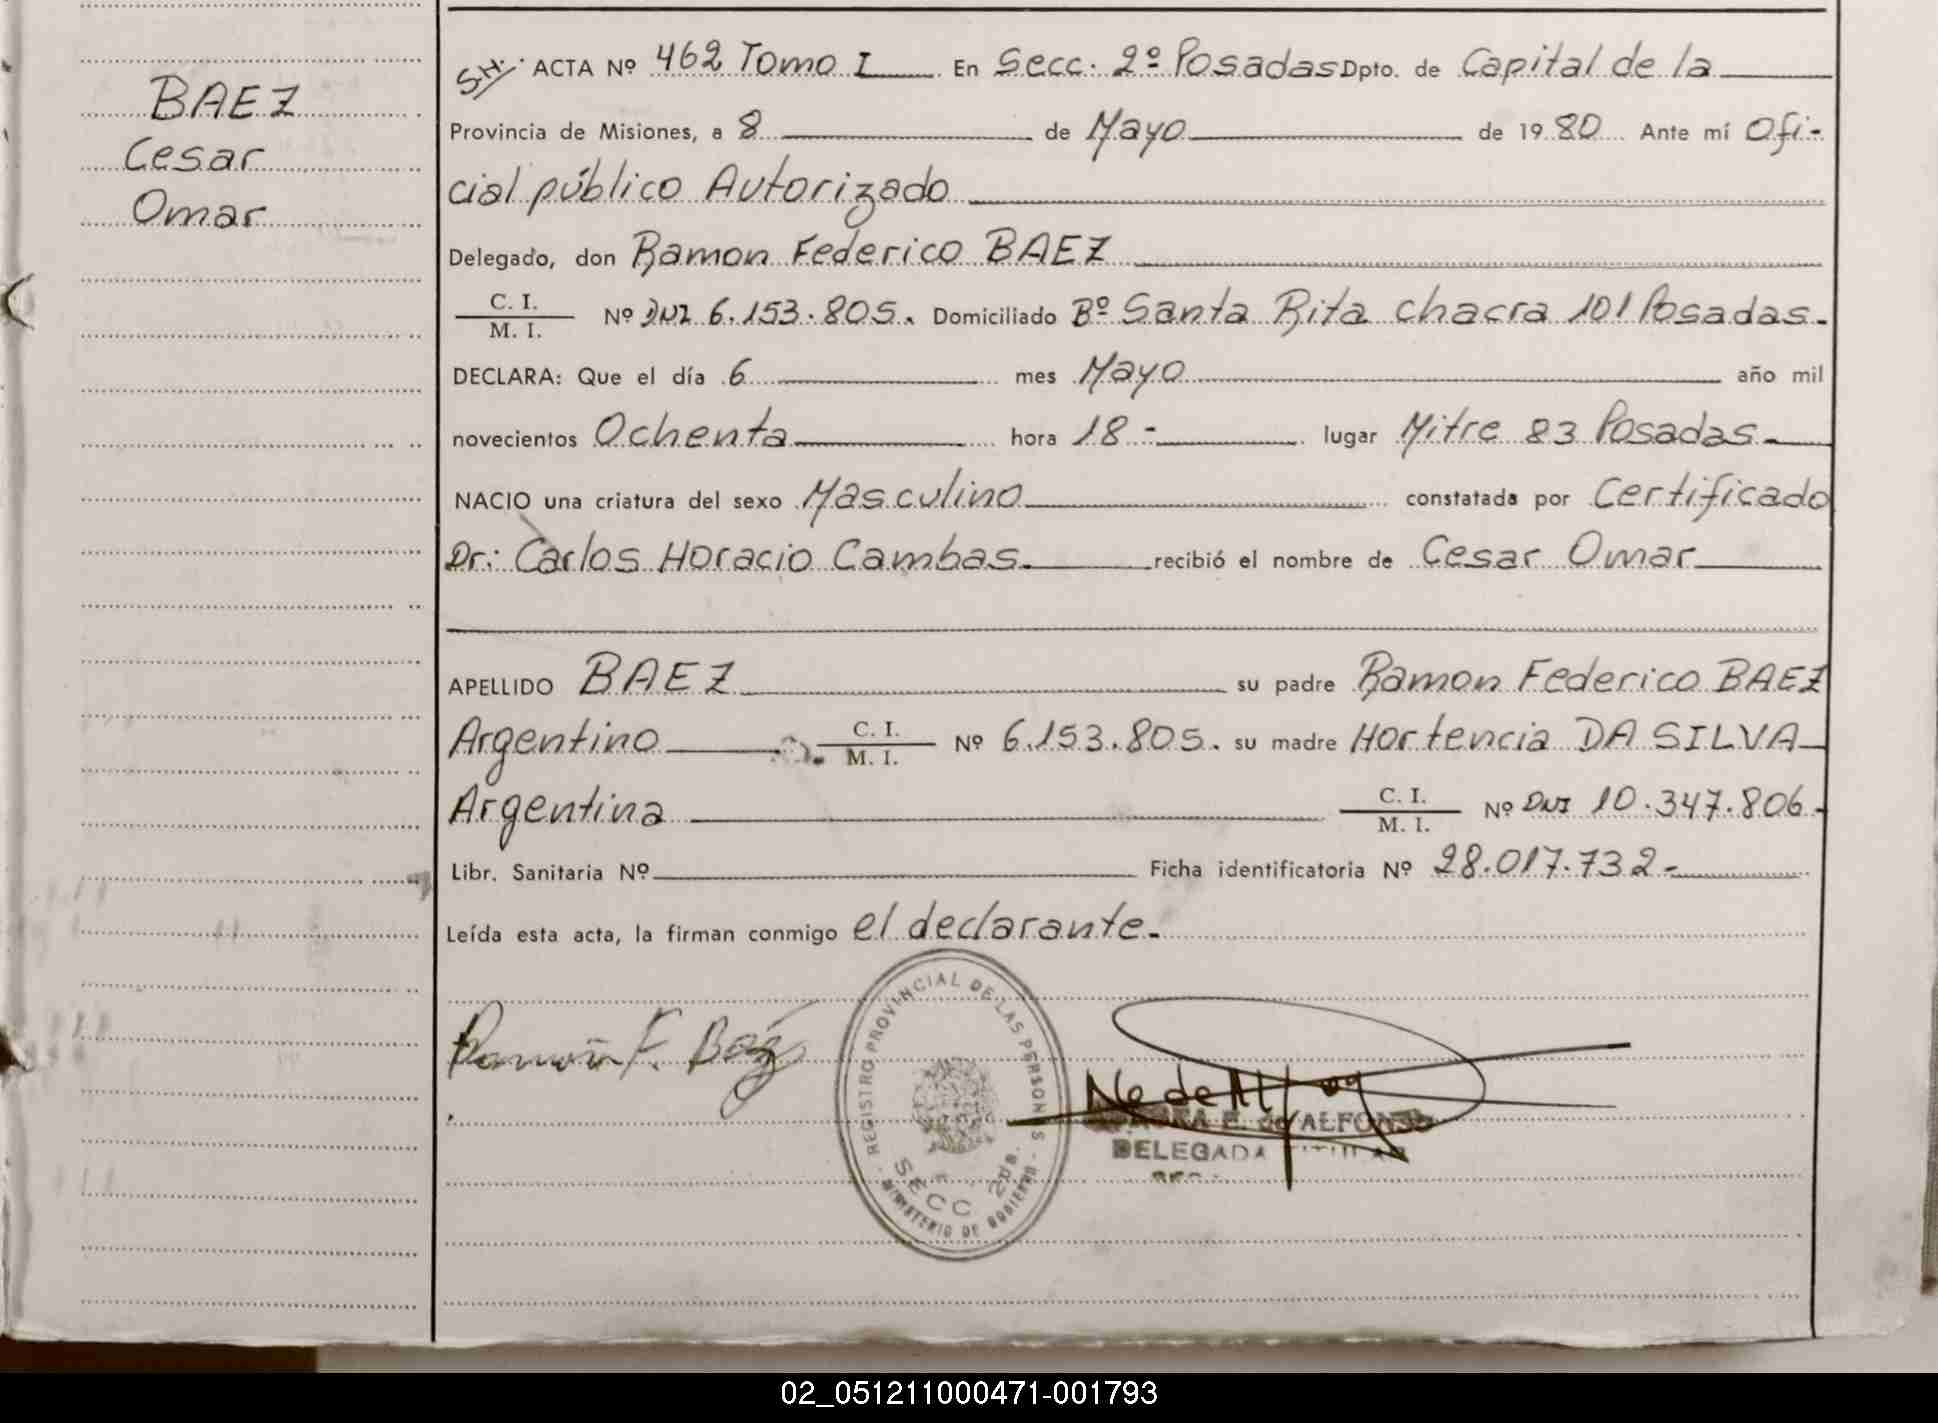 BAEZ
Cesar
Omar
S.H. ACTA Nº 462 Tomo I En Secc. 2º Posadas Dpto. de Capital de la
Provincia de Misiones, a 8 de Mayo de 1980 Ante mí Ofi-
cial público Autorizado
Delegado, don Ramon Federico BAEZ
C. I.
M. I. Nº DNI 6.153.805. Domiciliado Bº Santa Rita chacra 101 Posadas.
DECLARA: Que el día 6 mes Mayo año mil
novecientos Ochenta hora 18 - lugar Mitre 83 Posadas
NACIO una criatura del sexo Masculino constatada por Certificado
Dr: Carlos Horacio Cambas. recibió el nombre de Cesar Omar
APELLIDO BAEZ su padre Ramon Federico BAEZ
Argentino C. I.
M. I. Nº 6.153.805. su madre Hortencia DA SILVA
Argentina C. I.
M. I. Nº DNI 10.347.806
Libr. Sanitaria Nº Ficha identificatoria Nº 28.017.732-
Leída esta acta, la firman conmigo el declarante.
Ramón F. Baez
REGISTRO PROVINCIAL DE LAS PERSONAS
SECC 2da.
MINISTERIO DE GOBIERNO
E. de ALFONSO
DELEGADA TITULAR
02_051211000471-001793